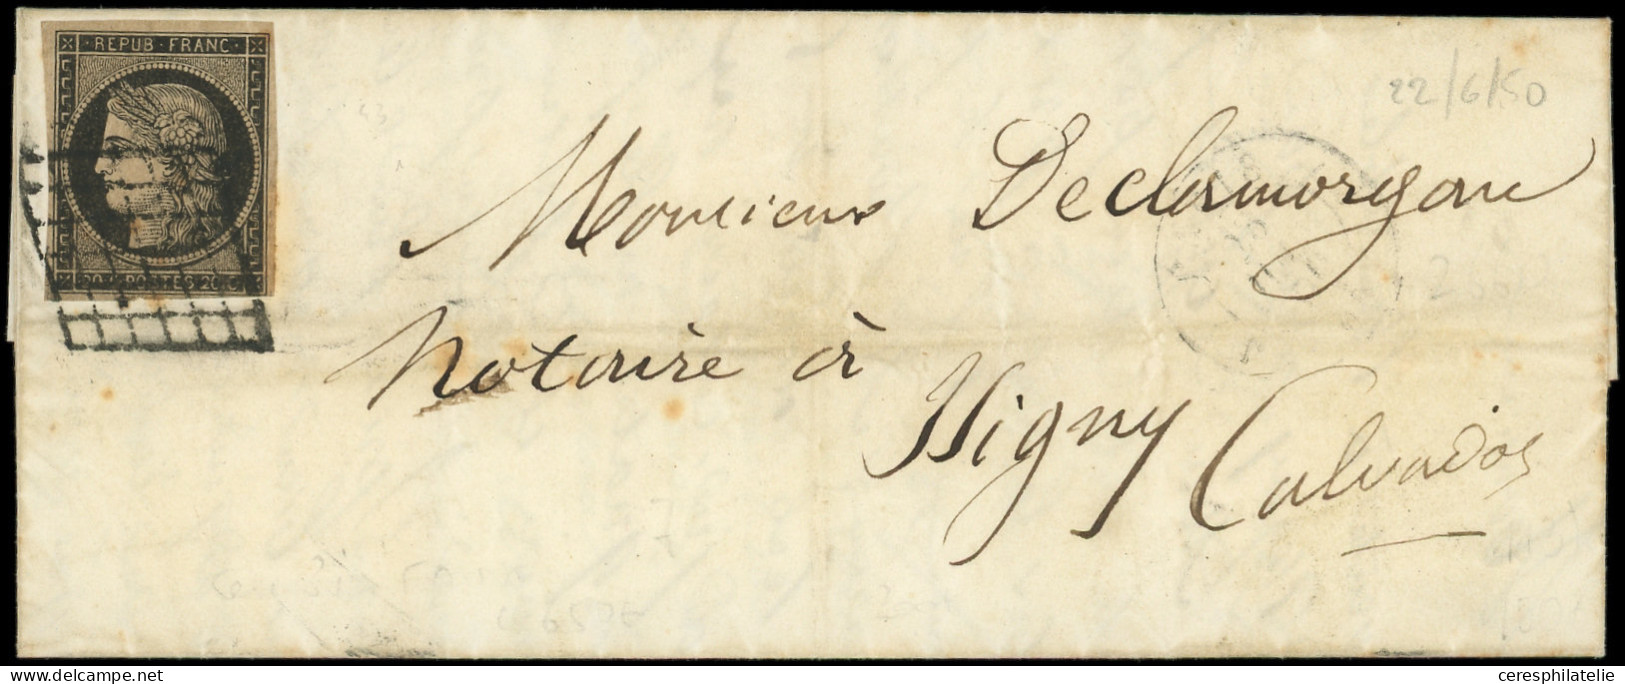 REPUB·FRANC·
20 c POSTES 20 c
22/6/50
Monsieur Declamorgan
Notaire à
Isigny
Calvados
ceresphilatelie